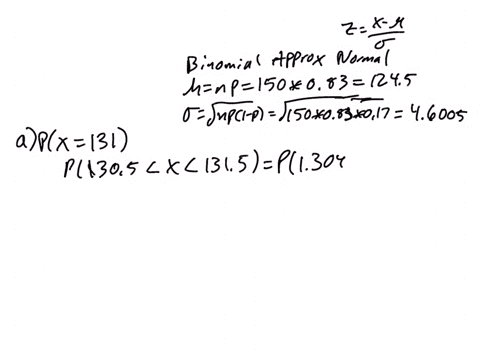 z = x-μ/σ
Binomial Approx Normal
μ = np = 150*0.83 = 124.5
σ = √np(1-p) = √150*0.83*0.17 = 4.6005
a) P(x = 131)
P(130.5 < x < 131.5) = P(1.304